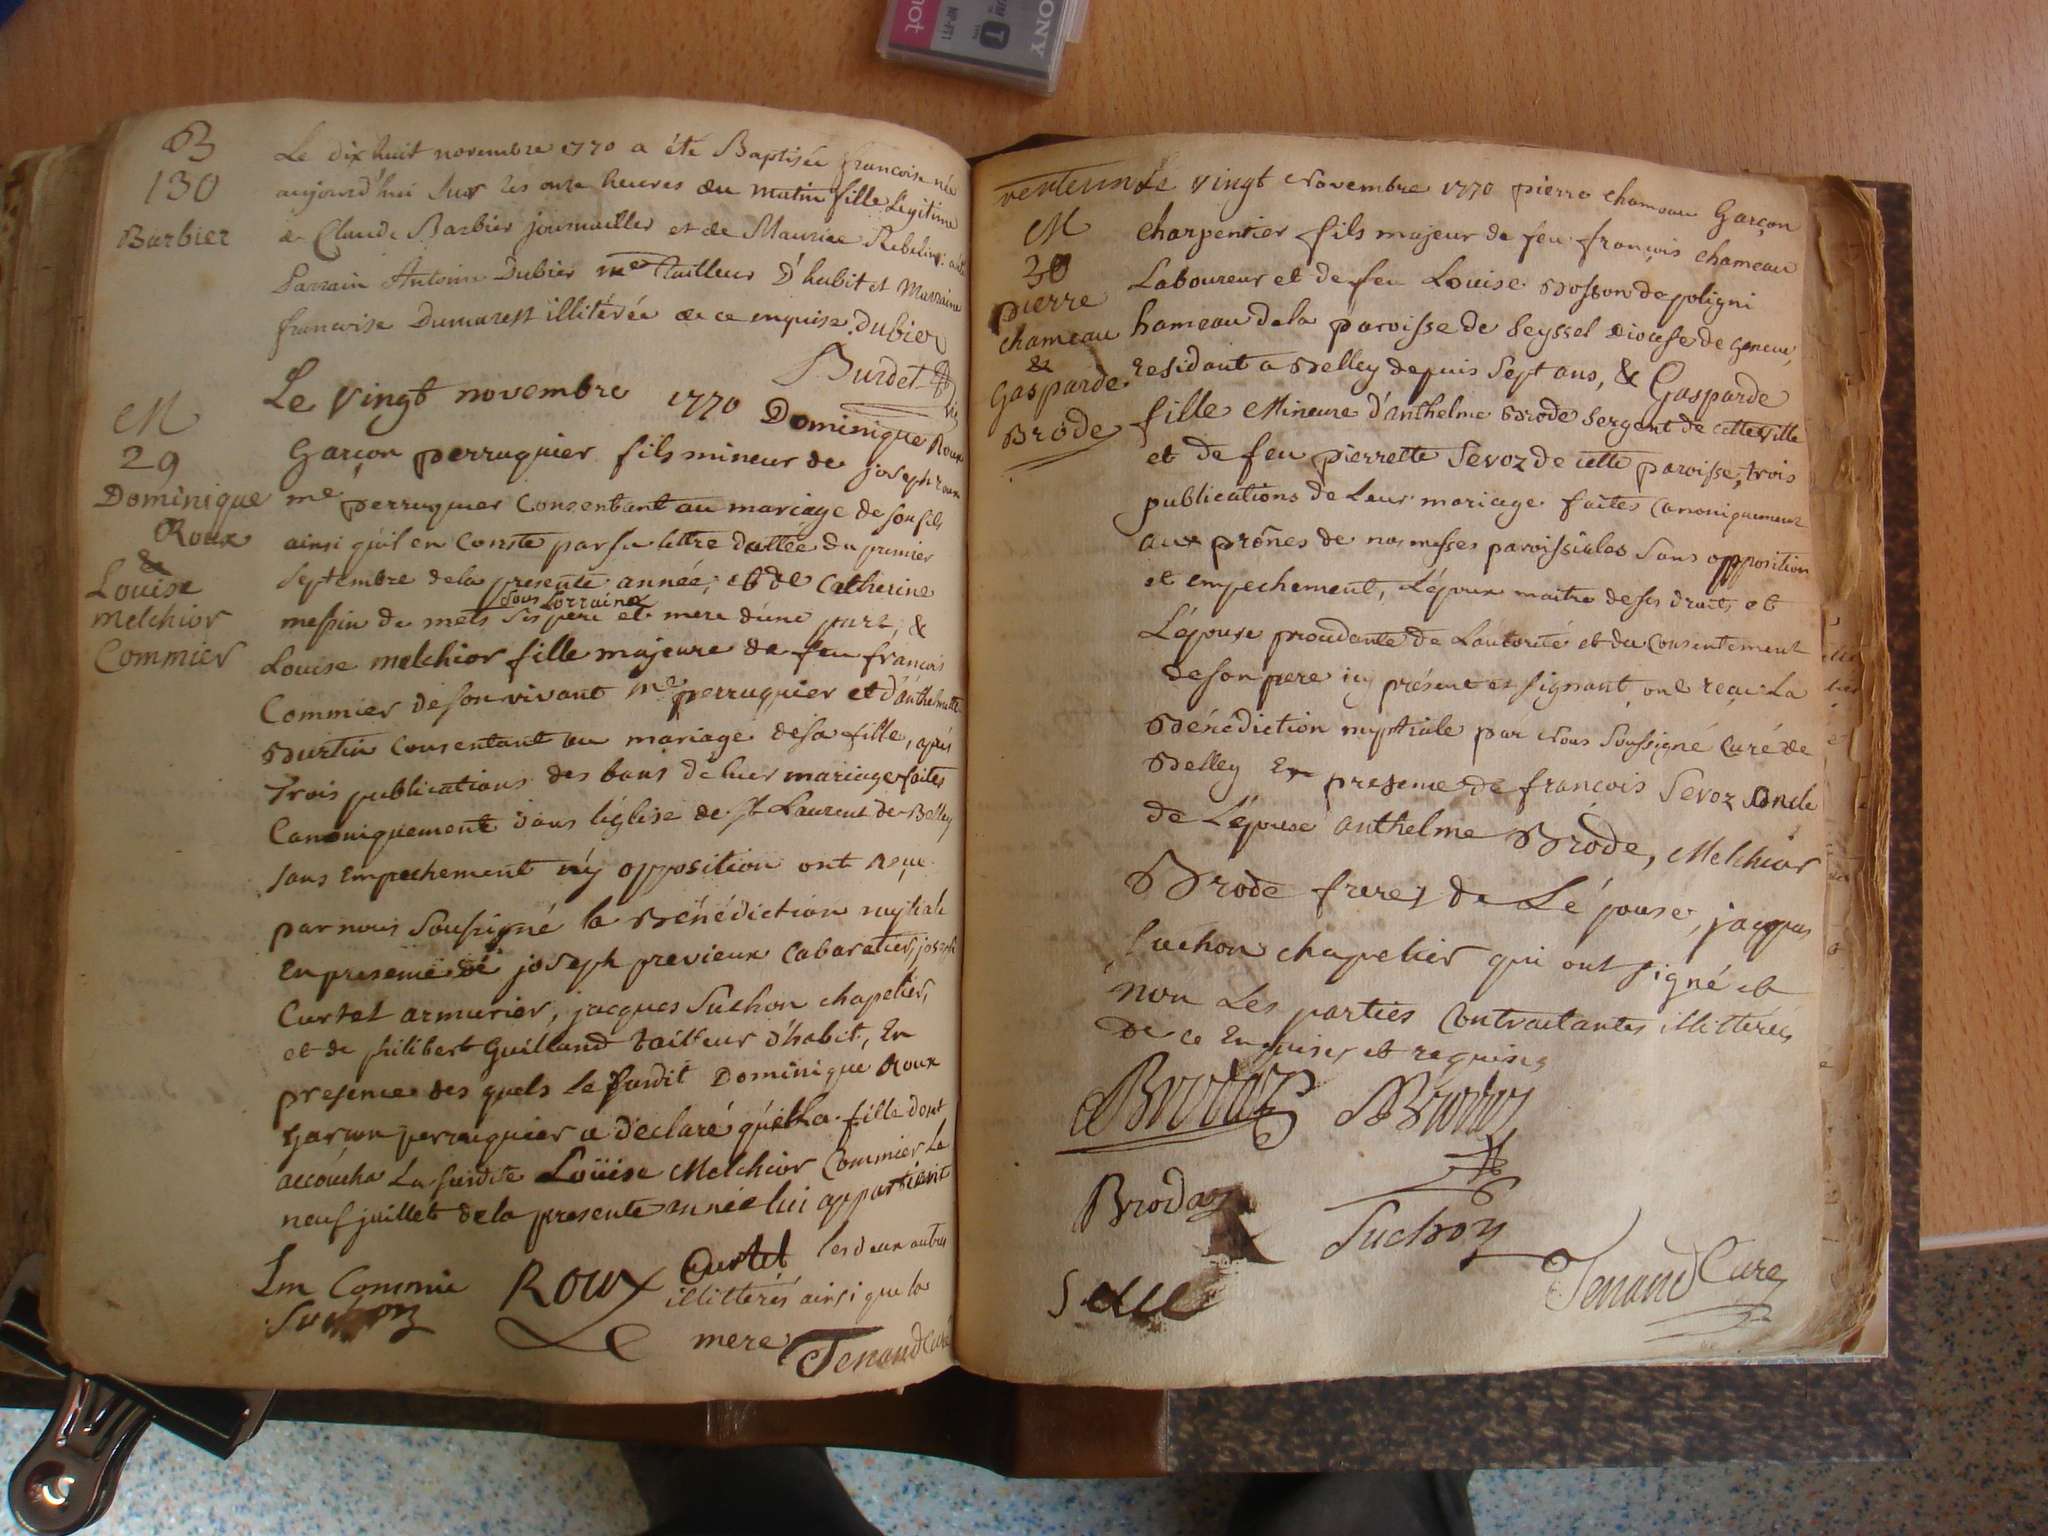 SONY
not
B
130
Barbier
Le dix huit novembre 1770 a été Baptisée francoise née
aujourd'hui sur les onze heures du matin fille Legitime
de Claude Barbier journailler et de Maurise
Parrain Antoine Dubier me Tailleur D'habit et Marraine
francoise Dumarest illitérée de ce enquise. Dubier
Burdet
M
29
Dominique
Roux
&
Louise
Melchior
Commier
Le Vingt novembre 1770 Dominique Roux
Garçon perruquier fils mineur de joseph roux
me perruquier Consentant au mariage de son fils
ainsi qu'il en Conste par sa lettre dattée du premier
Septembre dela presente année; et de Catherine
sous Lorraine
messin de mets ses pere et mere d'une part, &
Louise melchior fille majeure de feu francois
Commier de son vivant me perruquier et d'anthelmette
Burtin Consentant au mariage de sa fille, après
Trois publications des bans de leur mariage faites
Canoniquement dans l'église de St Laurent de Belley
sans Empechement ny opposition ont reçu
par nous Soussigné la Bénédiction nuptiale
En presence de joseph previeux Cabaretier, joseph
Curtet armurier, jacques Suchon chapelier,
et de philibert Guilland tailleur d'habit, En
presence des quels le susdit Dominique Roux
Garçon perruquier a déclaré que la fille dont
accoucha La susdite Louise Melchior Commier le
neuf juillet dela presente année lui appartient
Lm Commie Roux Curtet les deux autres
Suchon illittérés ainsi que la
mere Tenand Curé
M
30
pierre
chameau
&
Gasparde
Brode
Le vingt Novembre 1770 pierre chameau Garçon
charpentier fils majeur de feu françois chameau
Laboureur et de feu Louise Bosson de poligni
hameau dela paroisse de Seyssel Diocese de Geneve,
residant a Belley depuis Sept ans, & Gasparde
fille Mineure d'anthelme Brode Sergent de cette ville
et de feu pierrette Sevoz de cette paroisse, trois
publications de Leur mariage faites Canoniquement
aux prônes de nos messes paroissiales Sans opposition
et empechement, L'époux maitre de ses droits et
L'épouse procedante de L'autorité et du Consentement
de son pere icy présent et signant, ont reçu La
Bénédiction nuptiale par Nous Soussigné Curé de
Belley En presence de françois Sevoz Oncle
de L'épouse anthelme Brode, Melchior
Brode freres de L'épouse, jacques
Suchon chapelier qui ont signé et
non Les parties Contractantes illittérées
de ce Enquises et requises
Broda
Suchon
Tenand Curé